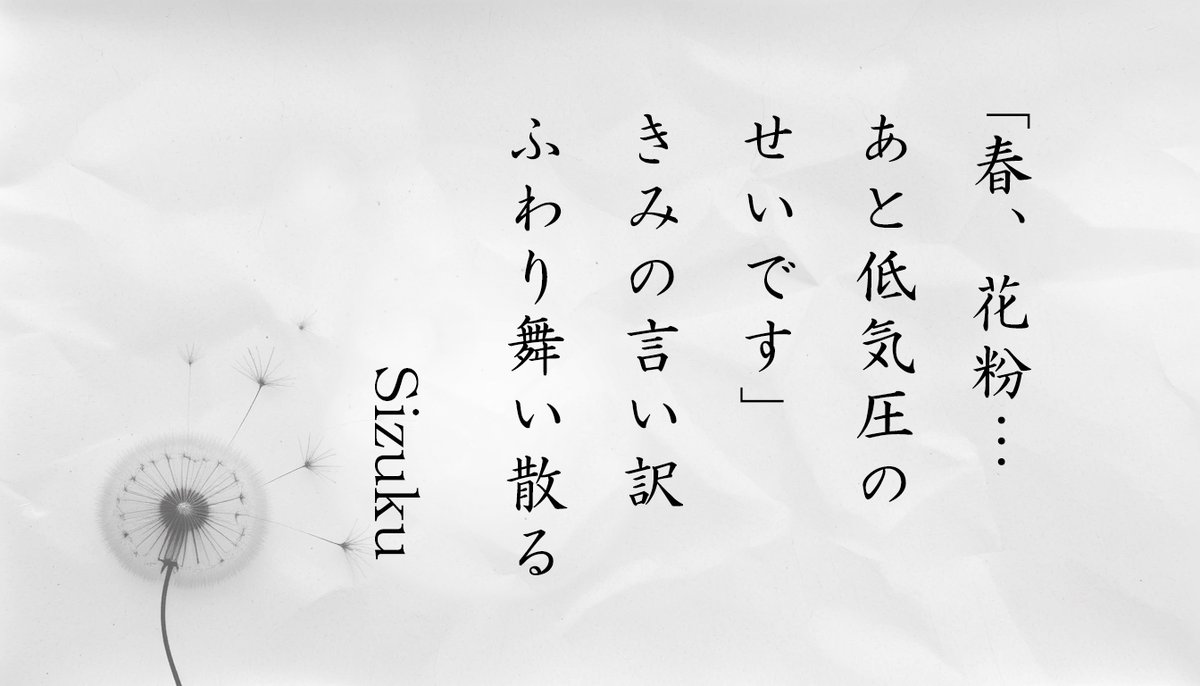 「春、 花粉…
あと低気圧の
せいです」
きみの言い訳
ふわり舞い散る
Sizuku